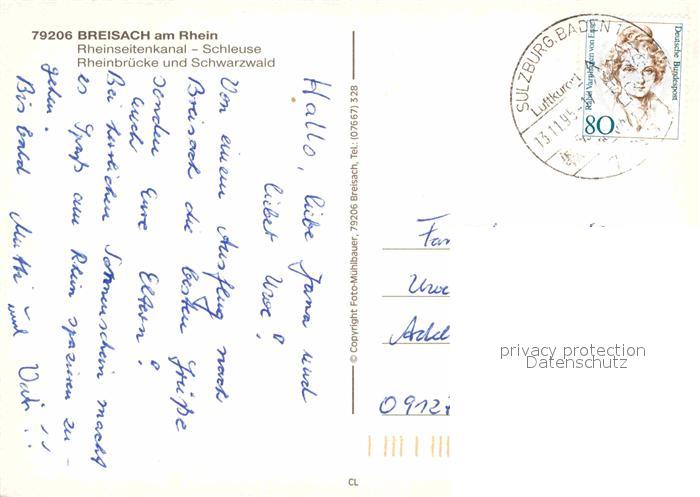 79206 BREISACH am Rhein
Rheinseitenkanal – Schleuse
Rheinbrücke und Schwarzwald
Hallo, liebe Jana und
lieber Uwe!
Von einem Ausflug nach
Breisach die besten Grüße
senden Euch Eure Eltern!
Bei herrlichem Sonnenschein macht
es Spaß am Rhein spazieren zu-
gehen.
Bis bald Mutti und Vati!!
© Copyright Foto-Mühlbauer, 79206 Breisach, Tel.: (07667) 328
CL
SULZBURG, BADEN 1
Luftkurort
13.11.95
Deutsche Bundespost
80
Fam
Uwe
Adel
0912
privacy protection
Datenschutz